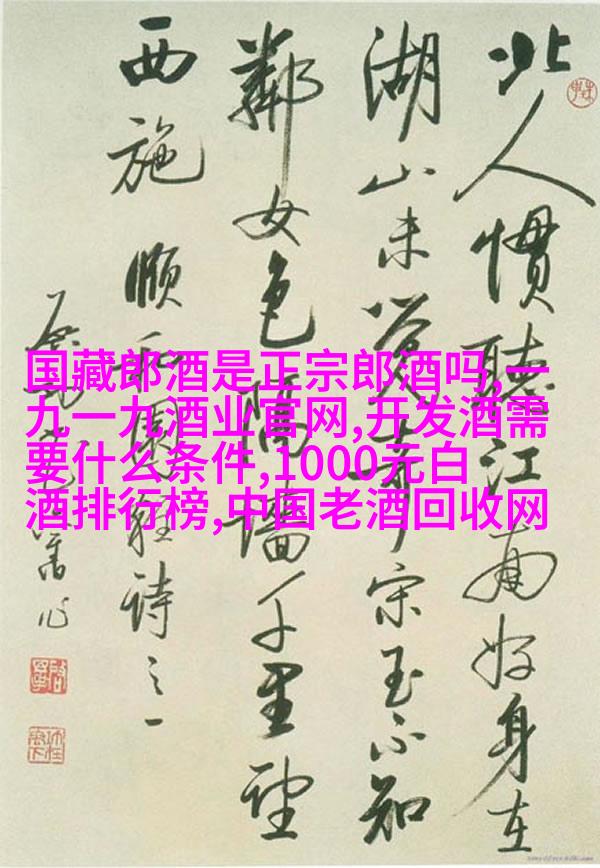 国藏郎酒是正宗郎酒吗,一
九一九酒业官网,开发酒需
要什么条件,1000元白
酒排行榜,中国老酒回收网
北人慣聽江南好身在
湖山未覺奇宋玉不知
鄰女色隔墙千里望
西施 頤和園雜詩之一
舊作